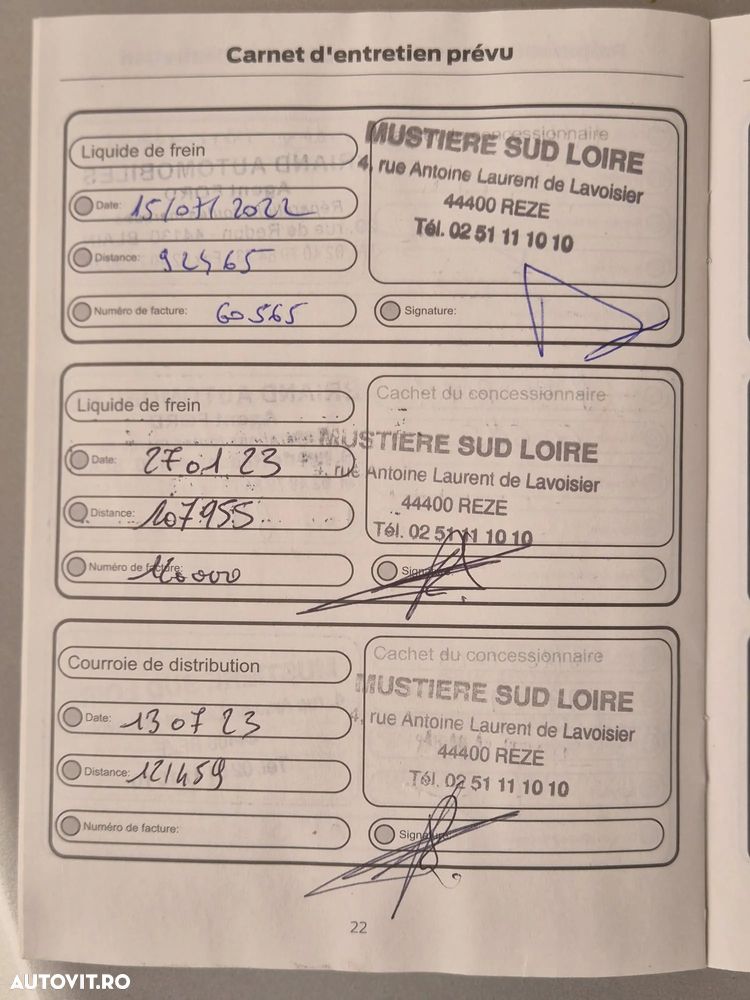 Carnet d'entretien prévu
Liquide de frein
MUSTIERE SUD LOIRE
4, rue Antoine Laurent de Lavoisier
44400 REZE
Tél. 02 51 11 10 10
Date: 2022
Distance: 92465
Numéro de facture: 60565
Signature:
Liquide de frein
Cachet du concessionnaire
MUSTIERE SUD LOIRE
rue Antoine Laurent de Lavoisier
44400 REZE
Tél. 02 51 11 10 10
Date: 27 01 23
Distance: 107955
Numéro de facture:
Signature:
Courroie de distribution
Cachet du concessionnaire
MUSTIERE SUD LOIRE
4, rue Antoine Laurent de Lavoisier
44400 REZE
Tél. 02 51 11 10 10
Date: 13 07 23
Distance: 121459
Numéro de facture:
Signature:
22
AUTOVIT.RO